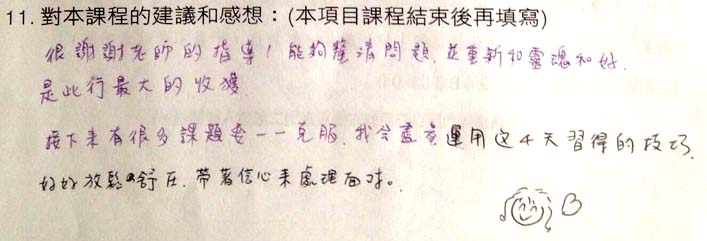 11. 對本課程的建議和感想：(本項目課程結束後再填寫)
很謝謝老師的指導！能夠釐清問題，並重新和靈魂和好，
是此行最大的收獲
接下來有很多課題要一一克服，我會盡量運用這4天習得的技巧，
好好放鬆舒压，帶著信心來處理面对。